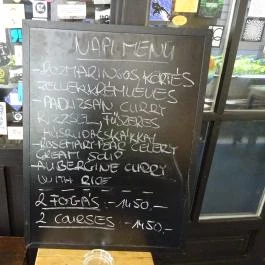 NAPI MENÜ
-ROZMARINGOS KÖRTÉS
ZELLERKRÉMLEVES
-PADLIZSÁN CURRY
RIZZSEL, FŰSZERES
HÚSRUDACSKÁKKAL
-ROSEMARY PEAR CELERY
CREAM SOUP
-AUBERGINE CURRY
WITH RICE
2 FOGÁS :-1450.-
2 COURSES :-1450,-